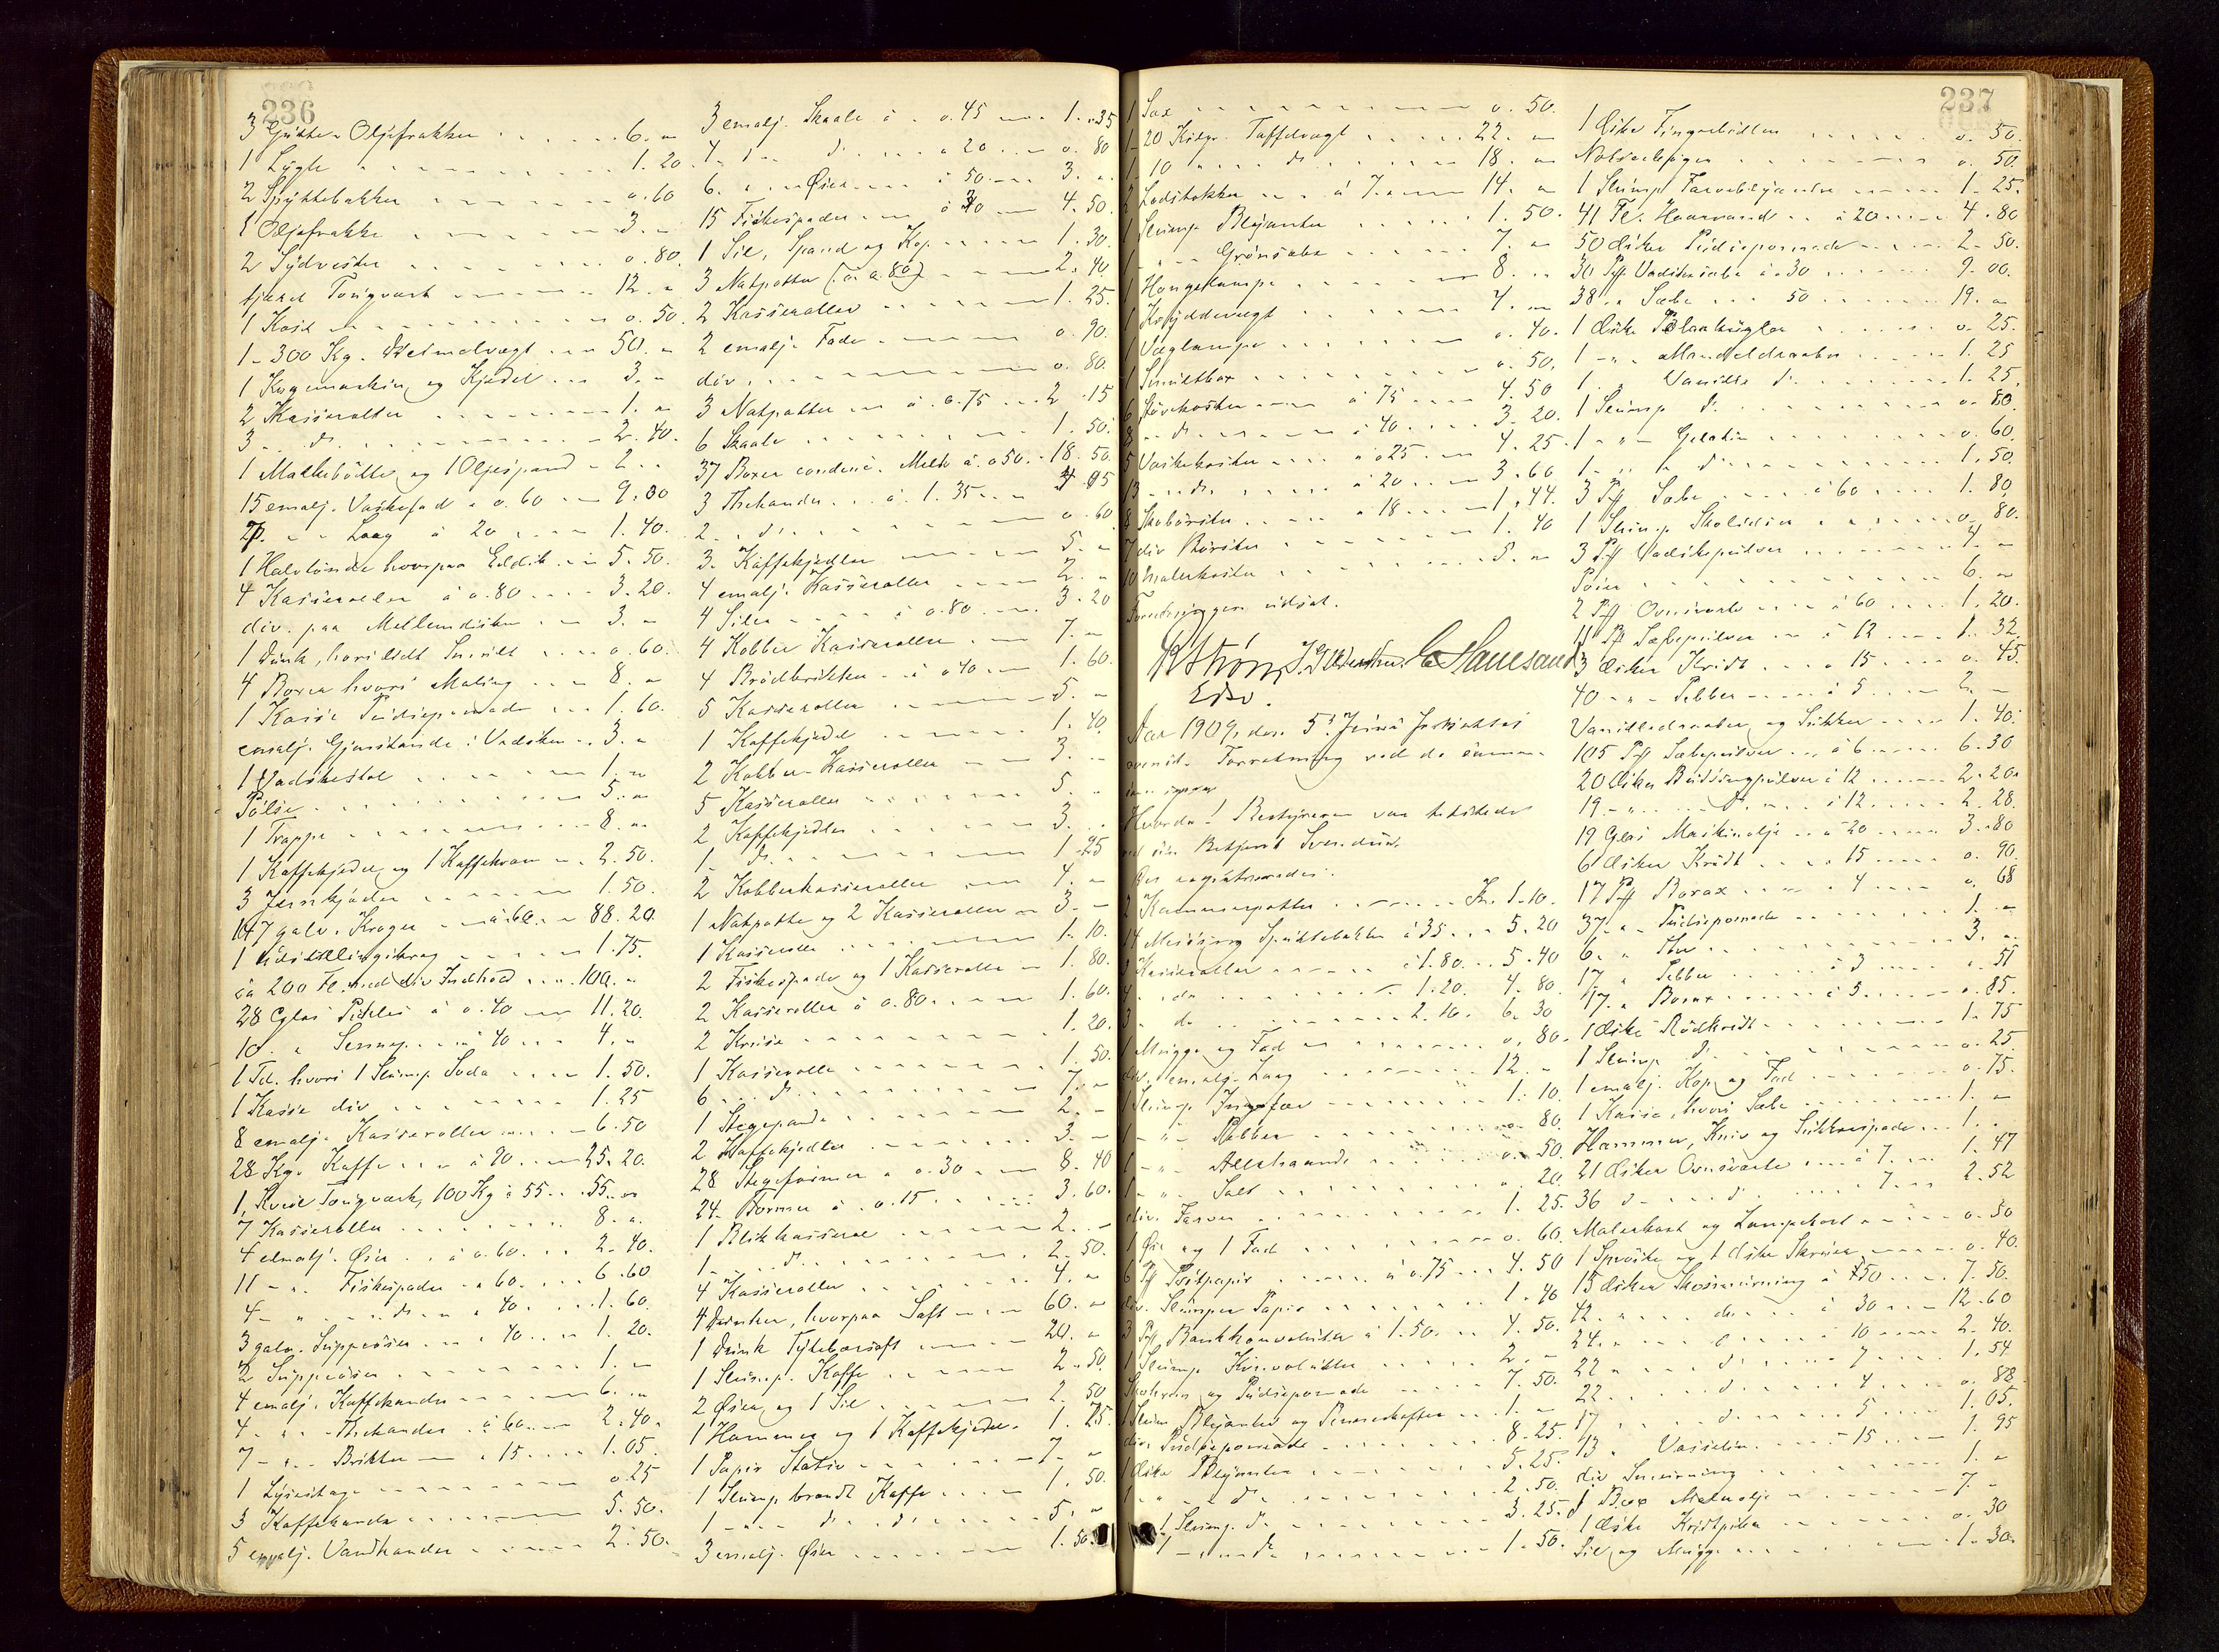 236
3 Gutte-Oljefrakker 6. "
1 Lygte 1. 20.
2 Spyttebakker 0. 60
1 Oljefrakke 3. "
2 Sydvester 0. 80.
fjaset Tougverk 12. "
1 Kost 0. 50.
1 - 300 Kg. Desimalvægt 50. "
1 Kogemaskin og Kjedel 3. "
2 Kasseroller 1. "
3 - do. 2. 40.
1 Melkebøtte og 1 Oljespand 2. "
15 emalj. Vaskefad " 0. 60 9. 00
7. " Laag à 20 1. 40.
1 Halvtønde hvorpaa Eddik 5. 50.
4 Kasseroller à 0. 80 3. 20.
div. paa Mellemdisken 3. "
1 Dunk, hvori lidt Sirup 0. 60.
4 Boxer hvori Maling 8. "
1 Kasse Pudsepomade 1. 60.
emalj. Gjenstande i Vinduen 3. "
1 Vadskestol 1. "
Pølse 5. "
1 Trappe 8. "
1 Kaffekjedel og 1 Kaffekvern 2. 50.
3 Jernkjeder 1. 50.
147 galv. Kroger à 60. 88. 20.
1 Udstillingskrog 1. 75.
ca 200 Fl. med div Indhold 100. "
28 Glas Pickles à 0. 40 11. 20.
10. " Sennep à 40 4. "
1 Td. hvori 1 Slump Soda 1. 50.
1 Kasse div 1. 25
8 emalj. Kasseroller 6. 50
28 Kg. Kaffe à 90 25. 20.
1 Kveil Tougverk, 100 Kg à 55 55. "
7 Kasseroller 8. "
4 emalj. Øser à 0. 60. 2. 40.
11 - " Fiskespader " 60 6. 60
4 - " - do " 40 1. 60.
3 galv. Suppeøser " 40 1. 20.
2 Suppeøser 1. "
4 emalj. Kaffekander 6. "
4 - " Thekander à 60 2. 40.
7 - " Brikker " 15 1. 05.
1 Lysestage 0. 25
3 Kaffekander 5. 50.
5 emalj. Vandkander 2. 50.
3 emalj. Skaale à 0. 45 1. 35
4 " do " 20 0. 80
6. " Øser à 50 3. "
15 Fiskespader à 30 4. 50.
1 Sil, Spand og Kop 1. 30.
3 Natpotter (à 0. 80) 2. 40.
2 Kasseroller 1. 25.
2 emalj. Fade 0. 90.
div. 0. 80.
3 Natpotter à 0. 75 2. 15
6 Skaale 1. 50.
37 Boxer condens. Melk à 0 50. 18. 50.
3 Thekander à 1. 35
2. " do. 0. 60
3. Kaffekjedler 5. "
4 emalj. Kasseroller 2. "
4 Siler à 0. 80 3. 20
4 Kobber Kasseroller 7. "
4 Brødbrikker à 0 40 1. 60.
5 Kasseroller 5. "
1 Kaffekjedel 1. 40.
2 Kobber-Kasseroller 3. "
5 Kasseroller 5. "
2 Kaffekjedler 3. "
1 - do 1. 25
2 Kobberkasseroller 4. "
1 Natpotte og 2 Kasseroller 3. "
1 Kasserolle 1. 10.
2 Fiskespader og 1 Kasserolle 1. 80.
2 Kasseroller à 0. 80. 1. 60.
2 Kruse 1. 20.
1 Kasserolle 1. 50.
6 - do 7. "
1 Stegepande 2. "
2 Kaffekjedler 3. "
28 Stegeformer " 0. 30 8. 40
24 - Former à 0. 15 3. 60.
1 Blikkasserol 2. "
1 - do 2. 50.
4 Kasseroller 4. "
4 Dunker, hvorpaa Saft 60. "
1 Dunk Tyttebærsaft 20. "
1 Slump Kaffe 2. 50.
2 Øser og 1 Sil 2. 50
1 Hammer og 1 Kaffekjedel 1. 25
1 Papir Stativ 7. "
1 Slump brændt Kaffe 1. 50.
1 - " do do 5. "
3 emalj. Øser 1. 50.
237
1 Sax 0. 50.
1 - 20 Kilogr. Taffelvægt 22. "
1 - 10 " do 18. "
2 Lodstokker à 7. " 14. "
1 Slump Blyanter 1. 50.
1 - " Grønsæbe 7. "
1 Hængelampe 8. "
1 Krydderivægt 4. "
1 Væglampe 0. 40.
1 Smultbox 0. 50.
6 Støvekoster à 75 4. 50
8 - do à 40 3. 20.
5 Vaskekoster à 0 25
13 - do à 20
8 Skobørster " 18 1. 44.
7 div Børster 1. 40
10 Malerkoster 5. "
Forretningen udsat.
K Strøm
Edsv.
Aar 1909, den 5te Juni fortsattes
ovenst. Forretning ved de samme
Mænd. Bestyreren var tilstede
Der registreredes:
2 Kammerpotter Kr. 1. 10.
14 Messing Spyttebakker à 35 5. 20
3 Kasseroller à 1. 80 5. 40
4. do 1. 20. 4. 80
3. do 2. 10. 6. 30
1 Mugge og Fad 0. 80.
div. emalj. Laag 12. "
1 Slump Ingefær 1. 10.
1 - " - Pebber 0. 80.
1 - " - Allehaande 0. 50.
1 - " - Salt 0. 20.
div. Farver 1. 25.
1 Øse og 1 Fad 0. 60.
6 Pf. Postpapir à 0. 75 4. 50
div. Slumper Papir 1. 40
3 Pf. Bankkonvolutter à 1. 50. 4. 50.
1 Slump Konvolutter 2. "
Skokrem og Pudsepomade 7. 50.
1 Slump Blyanter og Penneskafter 1. "
div. Pudsepomade 8. 25.
1 Æske Blyanter 5. 25.
1 - " do 2. 50.
1 Slump do 3. 25.
1 - " do 1. 50.
1 Æske Fingerbøller 0. 50.
Notisebøger 0. 50.
1 Slump Farveblyanter 1. 25.
41 Fl. Haarvand à 20 4. 80
50 Æsker Pudsepomade 2. 50.
30 Pf. Vadskesæbe à 30 9. 00.
38 " Sæbe 50 19. "
1 Æske 0. 25.
1 - " Mandeldraaber 1. 25
1 - " Vanille do 1. 25.
1 Slump do 0. 80.
1 - " - Gelatin 0. 60.
1 - " do 1. 50.
3 Pf. Sæbe à 60 1. 80.
1 Slump Skolisser 0. 80.
3 Pf. Vadskepulver "
Poser 6. "
2 Pf. Ovnsværte à 60 1. 20.
11 Pf Sæbepulver à 12 1. 32.
3 Æsker Kridt à 15 0. 45.
40 - " - Pebber à 5 2. "
Vanilledraaber og Sukker 1. 40.
105 Pf. Sæbepulver à 6 6. 30
20 Æsker Buddingpulver à 12 2. 20.
19 - " do à 12 2. 28.
19 Glas Maskinolje à 20 3. 80
6 Æsker Kridt à 15 0. 90.
17 Pf Borax à 4 0. 68
37 - " - Pudsepomade 1. "
6. " The 3. "
17. " Pebber à 3 0. 51
17. " Borax à 5 0. 85.
1 Æske Rødkridt 1. 75
1 Slump do 0. 25.
1 emalj. Kop og Fad 0. 75.
1 Kasse, hvori Sæbe 1. "
Hammer, Kniv og Sukkerspade 1. "
21 Æsker Ovnsværte à 7. 1. 47
36 do do 7. 2. 52
Malerkost og Lampekost 0. 50
1 Sprøite og 1 Æske Skruer 0. 40.
15 Æsker Skosmurning à 50 7. 50.
42. " do à 30 12. 60
24. " " 10 2. 40.
22 " do 7 1. 54
22 " do 4 0. 88
17 " do 5 1. 05.
13 " Vasselin 15 1. 95
div Smurning 1. "
1 Box Maskinolje 7. "
1 Æske Kridtpiber 0. 30
Sil og Mugge 1. 30.